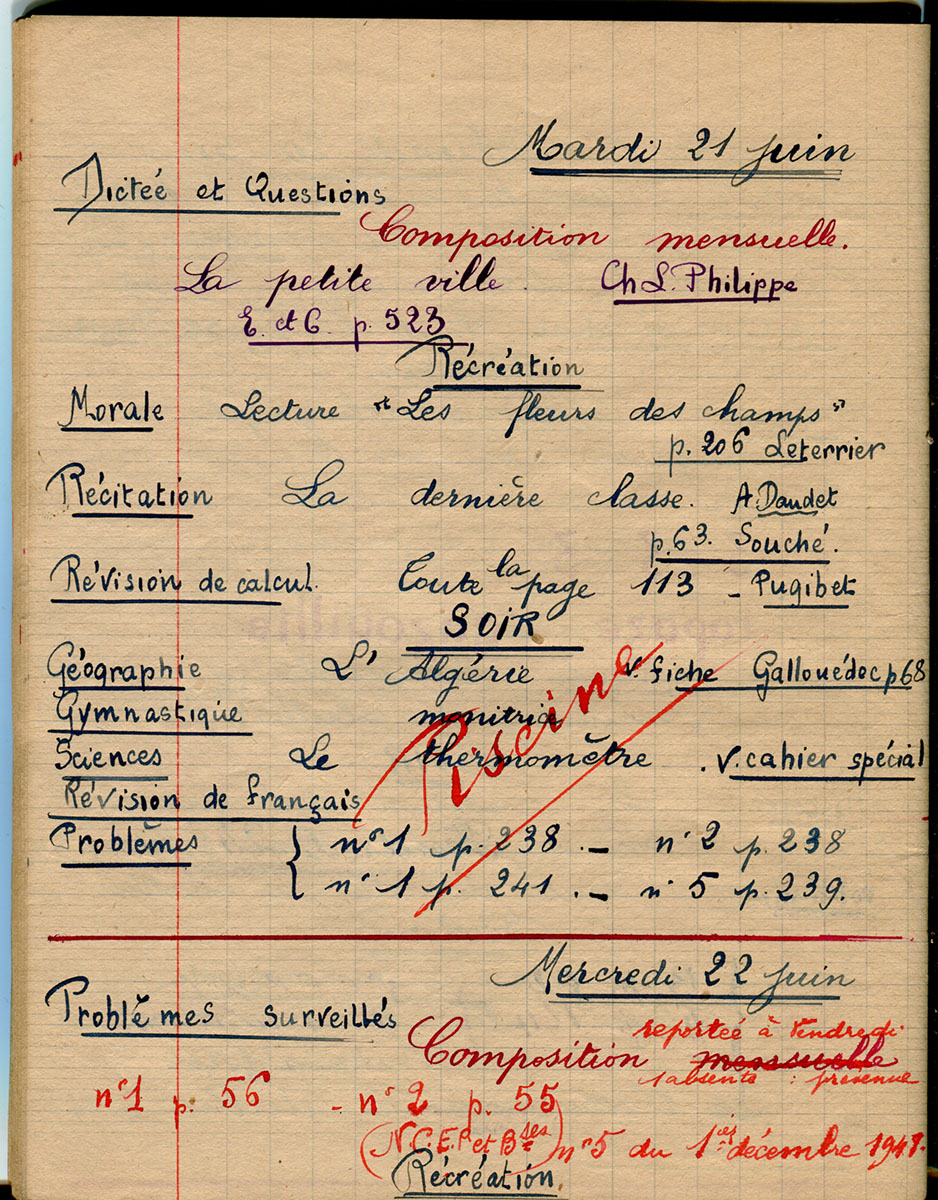 Mardi 21 juin
Dictée et Questions
Composition mensuelle.
La petite ville. Ch L. Philippe
E. et C. p. 523
Récréation
Morale Lecture "Les fleurs des champs"
p. 206 Leterrier
Récitation La dernière classe. A. Daudet
p. 63. Souché.
Révision de calcul. Toute la page 113 - Pugibet
SOIR
Géographie L'Algérie v. fiche Gallouédec p 68
Gymnastique monitrice
Piscine
Sciences Le thermomètre . v. cahier spécial
Révision de français
Problèmes { n° 1 p. 238 . - n° 2 p. 238
n° 1 p. 241 . - n° 5 p. 239.
Mercredi 22 juin
Problèmes surveillés
reportée à Vendredi
Composition mensuelle
1 absente : prévenue
n° 1 p. 56 - n° 2 p. 55
(N.C.E.P. et Bses) n° 5 du 1er décembre 1948.
Récréation.